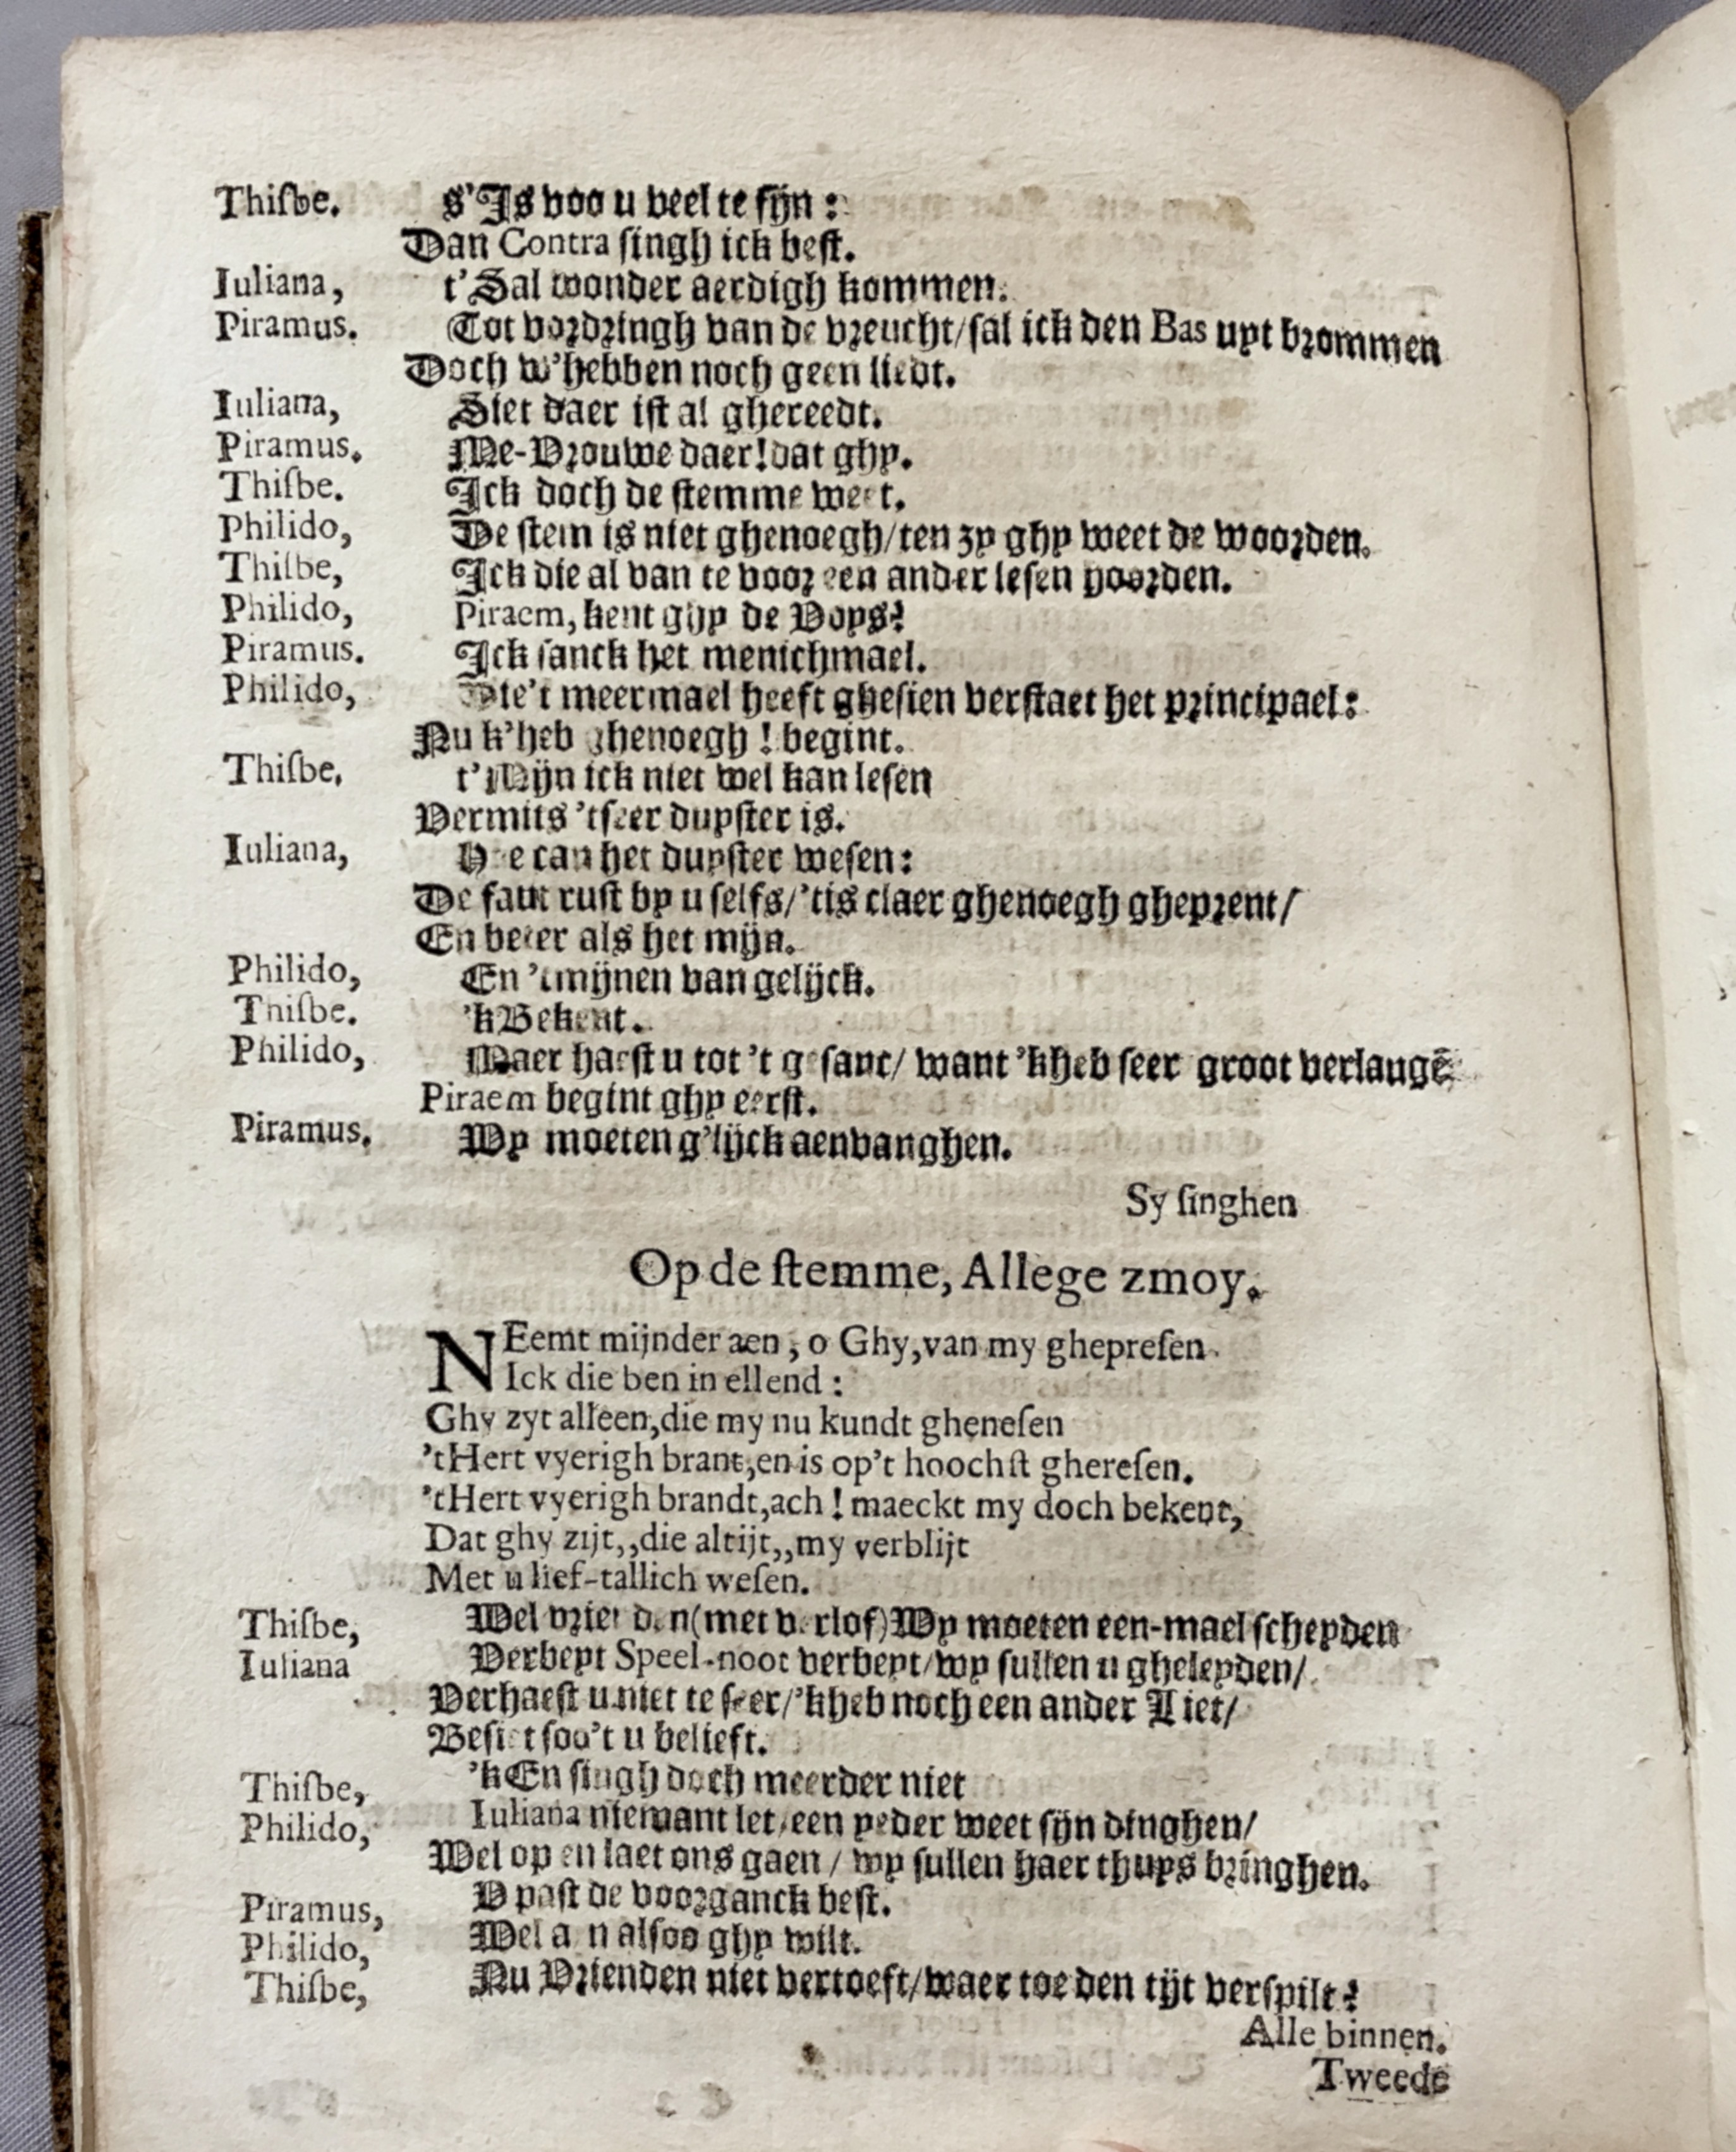 Thiſbe. s'Is voo u veel te ſijn:
Dan Contra ſingh ick beſt.
Iuliana, t'Sal wonder aerdigh kommen.
Piramus. Tot vordringh van de vreucht/ſal ick den Bas uyt brommen
Doch w'hebben noch geen liedt.
Iuliana, Siet daer iſt al ghereedt.
Piramus. Me-Vrouwe daer!dat ghy.
Thiſbe. Ick doch de ſtemme weet.
Philido, De ſtem is niet ghenoegh/ten zy ghy weet de woorden.
Thiſbe, Ick die al van te voor een ander leſen hoorden.
Philido, Piraem, kent ghy de Voys?
Piramus. Ick ſanck het menichmael.
Philido, Die't meermael heeft gheſien verſtaet het principael:
Nu k'heb ghenoegh ! begint.
Thiſbe, t'Mijn ick niet wel kan leſen
Vermits 'tſeer duyſter is.
Iuliana, Hoe can het duyſter weſen:
De faut ruſt by u ſelfs/'tis claer ghenoegh gheprent/
En beter als het mijn.
Philido, En 'tmijnen van gelijck.
Thiſbe. 'kBekent.
Philido, Maer haeſt u tot 't geſanc/ want 'kheb ſeer groot verlangē
Piraem begint ghy eerſt.
Piramus. Wy moeten g'lijck aenvanghen.
Sy ſinghen
Op de ſtemme, Allege zmoy.
NEemt mijnder aen, o Ghy, van my ghepreſen.
Ick die ben in ellend :
Ghy zyt alleen, die my nu kundt gheneſen
'tHert vyerigh brant, en is op't hoochſt ghereſen.
'tHert vyerigh brandt, ach ! maeckt my doch bekent,
Dat ghy zijt,,die altijt,,my verblijt
Met u lief-tallich weſen.
Thiſbe, Wel vrienden(met verlof)Wy moeten een-mael ſcheyden
Iuliana Verbeyt Speel-noot verbeyt/wy ſullen u gheleyden/
Verhaeſt u niet te ſeer/'kheb noch een ander Liet/
Beſiet ſoo't u belieft.
Thiſbe, 'kEn ſingh doch meerder niet
Philido, Iuliana niemant let/een yeder weet ſijn dinghen/
Wel op en laet ons gaen / wy ſullen haer thuys bringhen.
Piramus, V paſt de voorganck beſt.
Philido, Wel aen alſoo ghy wilt.
Thiſbe, Nu Vrienden niet vertoeft/waer toe den tijt verſpilt?
Alle binnen.
Tweede